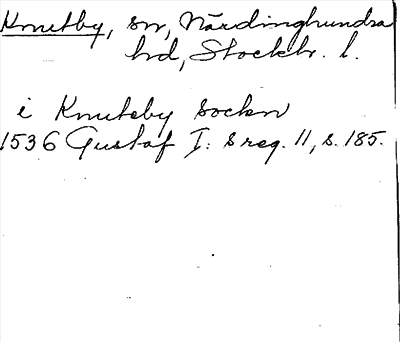 Knutby, sn, Närdinghundra
hd, Stockh. l.
i Knuteby sockn
1536 Gustaf I: s reg. 11, s. 185.